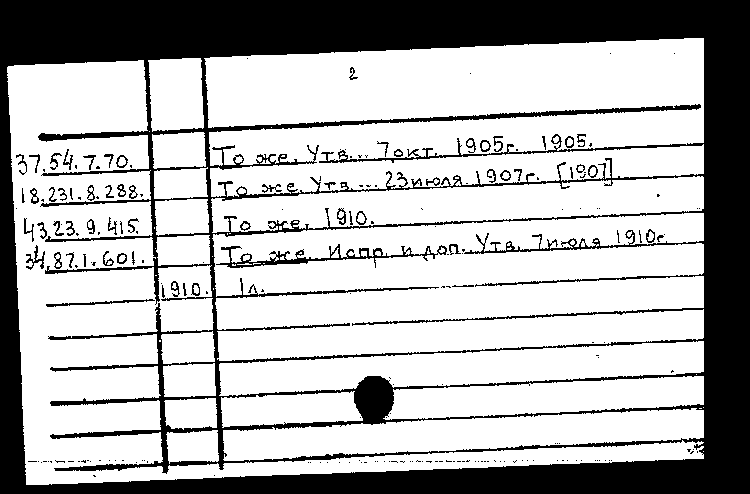 2
37.54.7.70. То же. Утв... 7 окт. 1905г. 1905.
18.231.8.288. То же. Утв... 23 июля 1907г. [1907].
43.23.9.415. То же. 1910.
34.87.1.601. То же. Испр. и доп. Утв. 7 июля 1910г.
1910. 1 л.